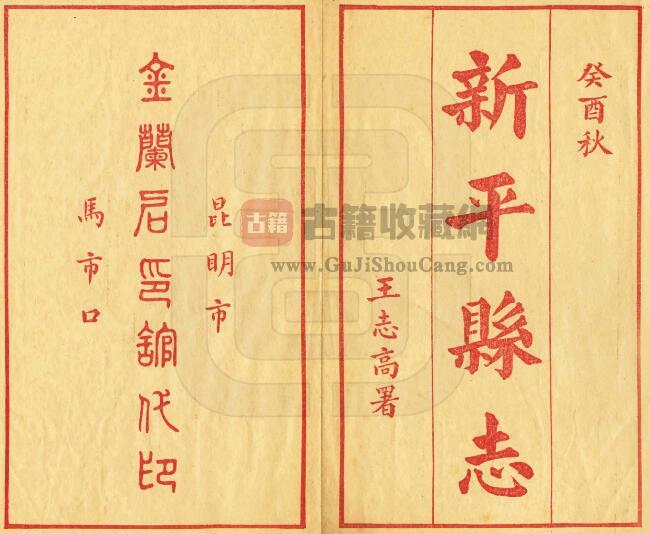 癸酉秋
新平縣志
王志高署
昆明市
金蘭石印館代印
馬市口
古籍
古籍收藏網
www.GuJiShouCang.com